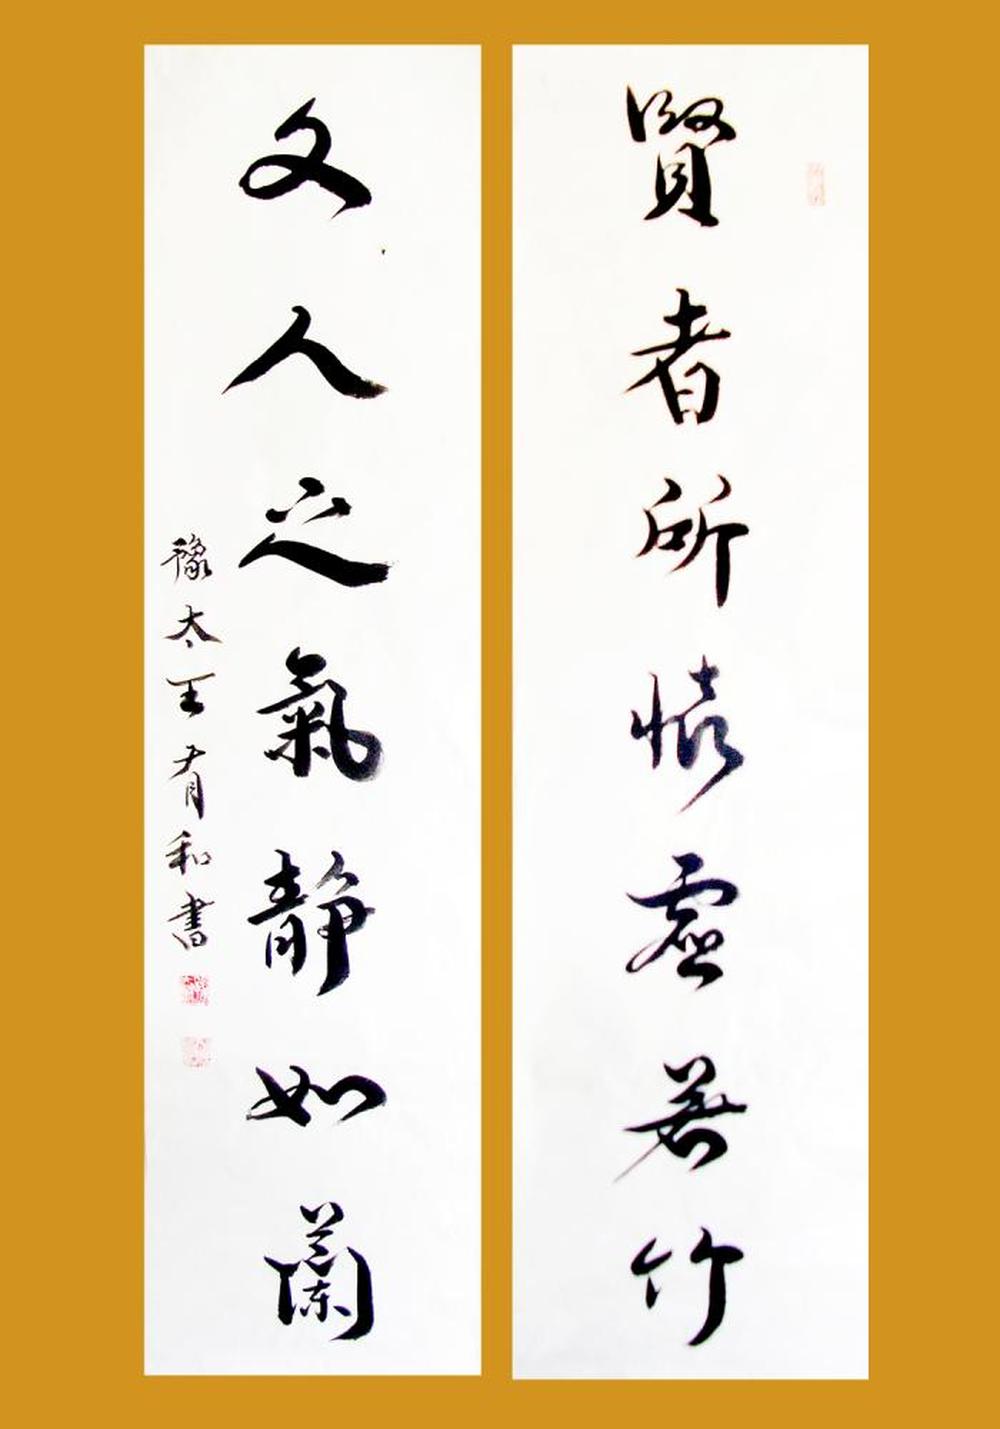 賢者所懷虛若竹
文人之氣靜如蘭
豫太王有和書